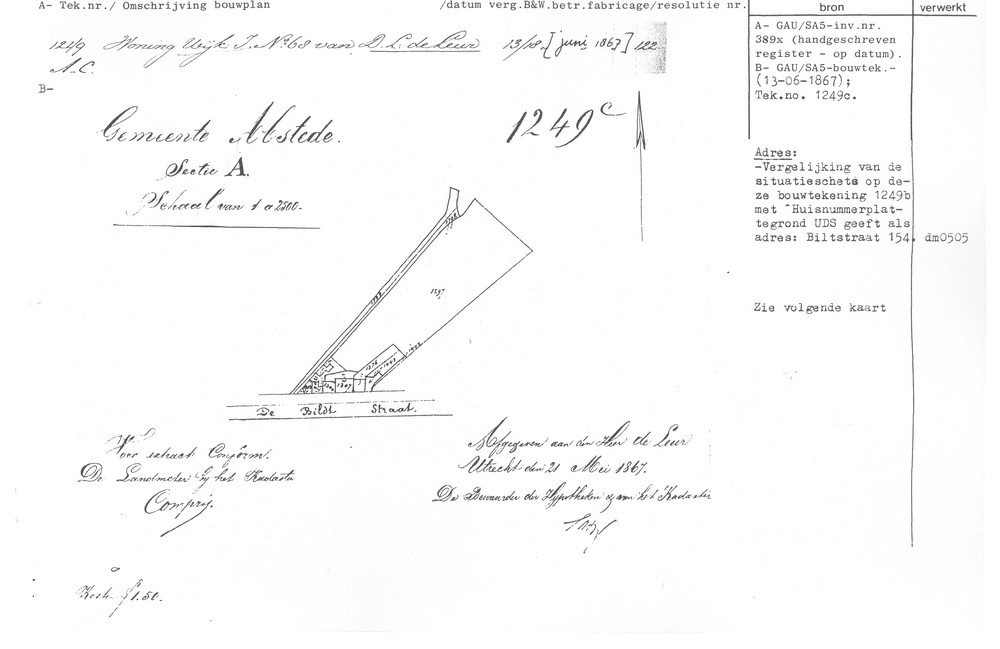 A- Tek.nr./ Omschrijving bouwplan /datum verg.B&W.betr.fabricage/resolutie nr.
bron verwerkt
1249 Woning Wijk J. No 68 van D. L. de Leur 13/18 [juni 1867] 122
A-C.
B-
A- GAU/SA5-inv.nr.
389x (handgeschreven
register - op datum).
B- GAU/SA5-bouwtek.-
(13-06-1867);
Tek.no. 1249c.
Gemeente Abstede.
Sectie A.
Schaal van 1 a 2500.
1249 c
Adres:
-Vergelijking van de
situatieschets op de-
ze bouwtekening 1249b
met "Huisnummerplat-
tegrond UDS geeft als
adres: Biltstraat 154. dm0505
Zie volgende kaart
1297
De Bildt Straat.
Voor extract Conform.
De Landmeter bij het Kadaster
Afgegeven aan den Heer de Leur
Utrecht den 21 Mei 1867.
De Bewaarder der Hypotheken & van het Kadaster
Kost f 1.50.